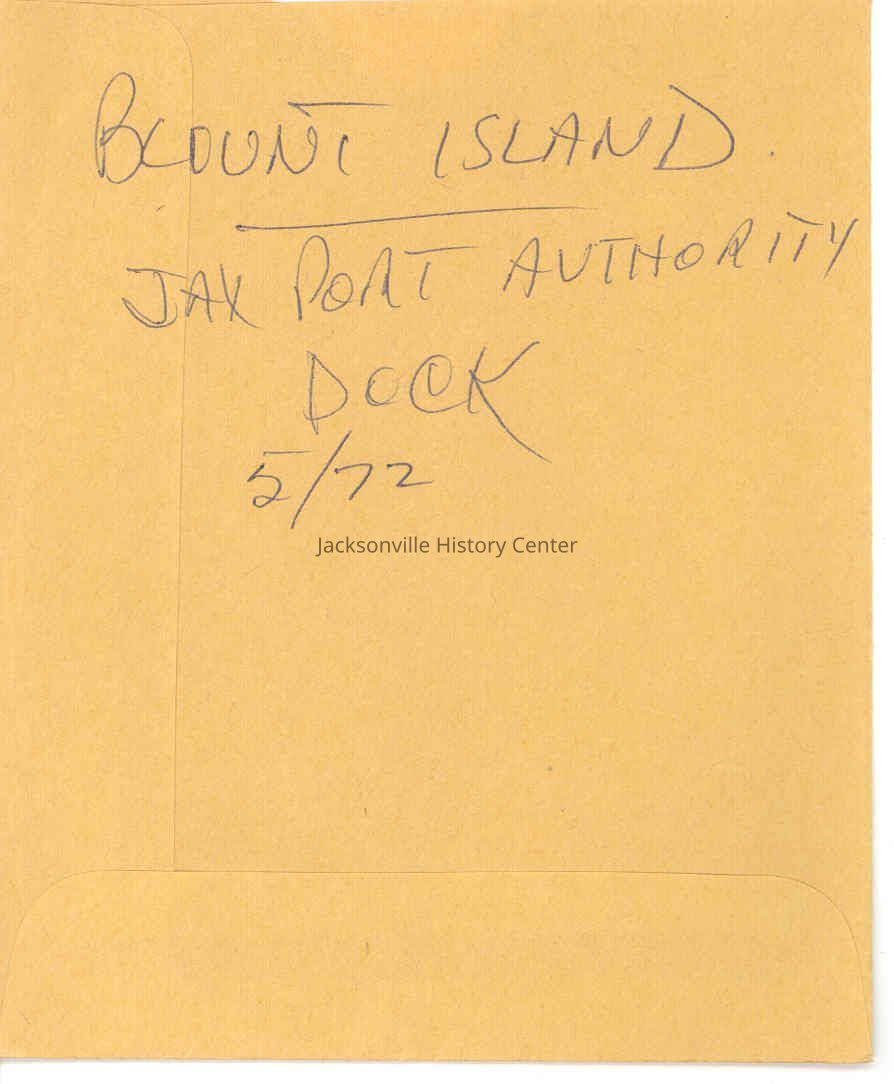 BLOUNT ISLAND.
JAX PORT AUTHORITY
DOCK
5/72
Jacksonville History Center